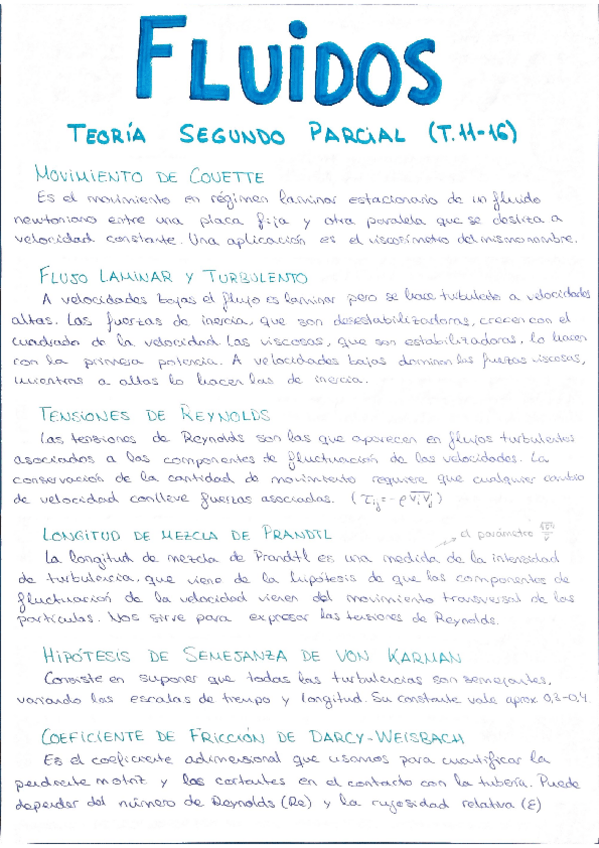 FLUIDOS
TEORÍA SEGUNDO PARCIAL (T.11-16)
MOVIMIENTO DE COUETTE
Es el movimiento en régimen laminar estacionario de un fluido
newtoniano entre una placa fija y otra paralela que se desliza a
velocidad constante. Una aplicación es el viscosímetro del mismo nombre.
FLUJO LAMINAR Y TURBULENTO
A velocidades bajas el flujo es laminar pero se hace turbulento a velocidades
altas. Las fuerzas de inercia, que son desestabilizadoras, crecen con el
cuadrado de la velocidad. Las viscosas, que son estabilizadoras, lo hacen
con la primera potencia. A velocidades bajas dominan las fuerzas viscosas,
mientras a altas lo hacen las de inercia.
TENSIONES DE REYNOLDS
Las tensiones de Reynolds son las que aparecen en flujos turbulentos
asociadas a las componentes de fluctuación de las velocidades. La
conservación de la cantidad de movimiento requiere que cualquier cambio
de velocidad conlleve fuerzas asociadas. (τij = -ρ V̅i̅V̅j̅)
LONGITUD DE MEZCLA DE PRANDTL
el parámetro
La longitud de mezcla de Prandtl es una medida de la intensidad
de turbulencia, que viene de la hipótesis de que las componentes de
fluctuación de la velocidad vienen del movimiento transversal de las
partículas. Nos sirve para expresar las tensiones de Reynolds.
HIPÓTESIS DE SEMEJANZA DE VON KARMAN
Consiste en suponer que todas las turbulencias son semejantes,
variando las escalas de tiempo y longitud. Su constante vale aprox 0,3-0,4
COEFICIENTE DE FRICCIÓN DE DARCY-WEISBACH
Es el coeficiente adimensional que usamos para cuantificar la
pendiente motriz y los cortantes en el contacto con la tubería. Puede
depender del número de Reynolds (Re) y la rugosidad relativa (ε)